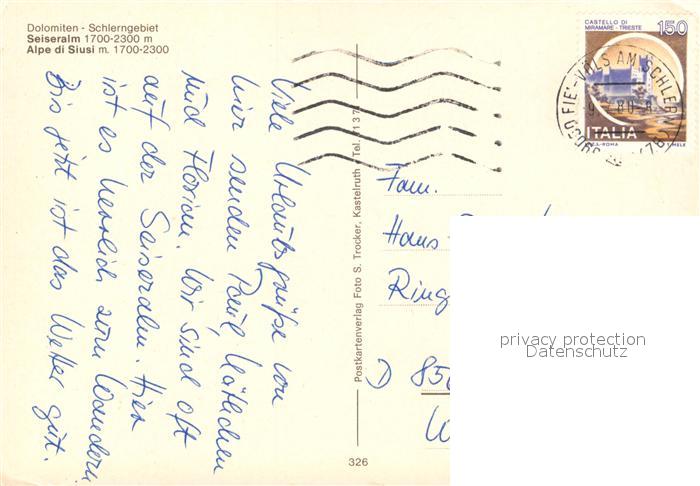 Dolomiten - Schlerngebiet
Seiseralm 1700-2300 m
Alpe di Siusi m. 1700-2300
Viele Urlaubsgrüße von
hier senden Paul, Kätlchen
und Florian. Wir sind oft
auf der Seiseralm. Hier
ist es herrlich zum Wandern.
Bis jetzt ist das Wetter gut.
Postkartenverlag Foto S. Trocker, Kastelruth Tel. 7137
326
CASTELLO DI
MIRAMARE - TRIESTE
150
ITALIA
I.P.Z.S.-ROMA
FIE'-VÖLS AM SCHLERN
Fam.
Hans
Ring
D 85
W
privacy protection
Datenschutz